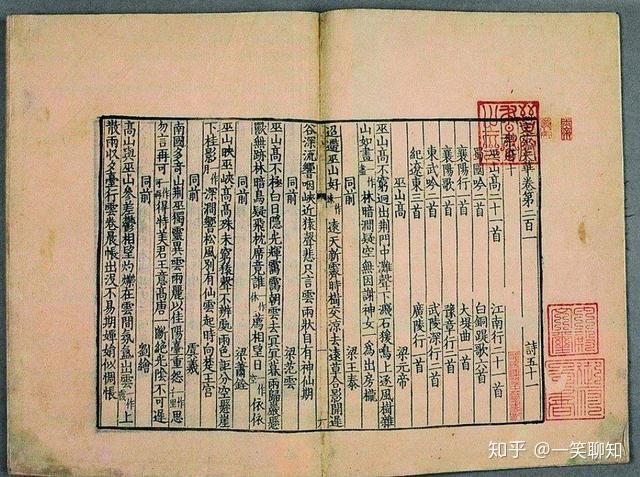 文苑英華卷第二百一
詩五十一
巫山高二十一首
江南行二首
蜀國吟一首
白銅蹀歌六首
襄陽行一首
大堤曲二首
襄陽歌一首
豫章行二首
東武吟一首
武陵深行一首
紀遼東三首
廣陵行一首
巫山高
梁元帝
巫山高不窮迥出荆門中灘聲下濺石猿鳴上逐風樹雜
山如畫林暗澗疑空無因謝神女一為出房櫳
同前
梁王泰
迢遞巫山好遠天新霽時樹交涼去遠草合影開遲
谷深流響咽峽近猿聲悲只言雲雨狀自有神仙期
同前
梁范雲
巫山高不極白日隱光輝靄靄朝雲去冥冥暮雨歸巖懸
獸無跡林暗鳥疑飛枕席竟誰薦相望日依依
同前
梁蕭銓
巫山映巫峽高高殊未窮猿聲不辨處雨色詎分空懸崖
下桂影深澗響松風別有仙雲起時向楚王宮
同前
虞羲
南國多奇山荆巫獨靈異雲雨麗以佳陽臺重怨思
勿言再可得特美君王意高唐一斷絶光陰不可遲
同前
劉繪
高山與巫山參差鬱相望灼爍在雲間氛氳出雲上
散雨收夕臺行雲卷晨帳出没不易期嬋娟似惆悵
知乎 @一笑聊知